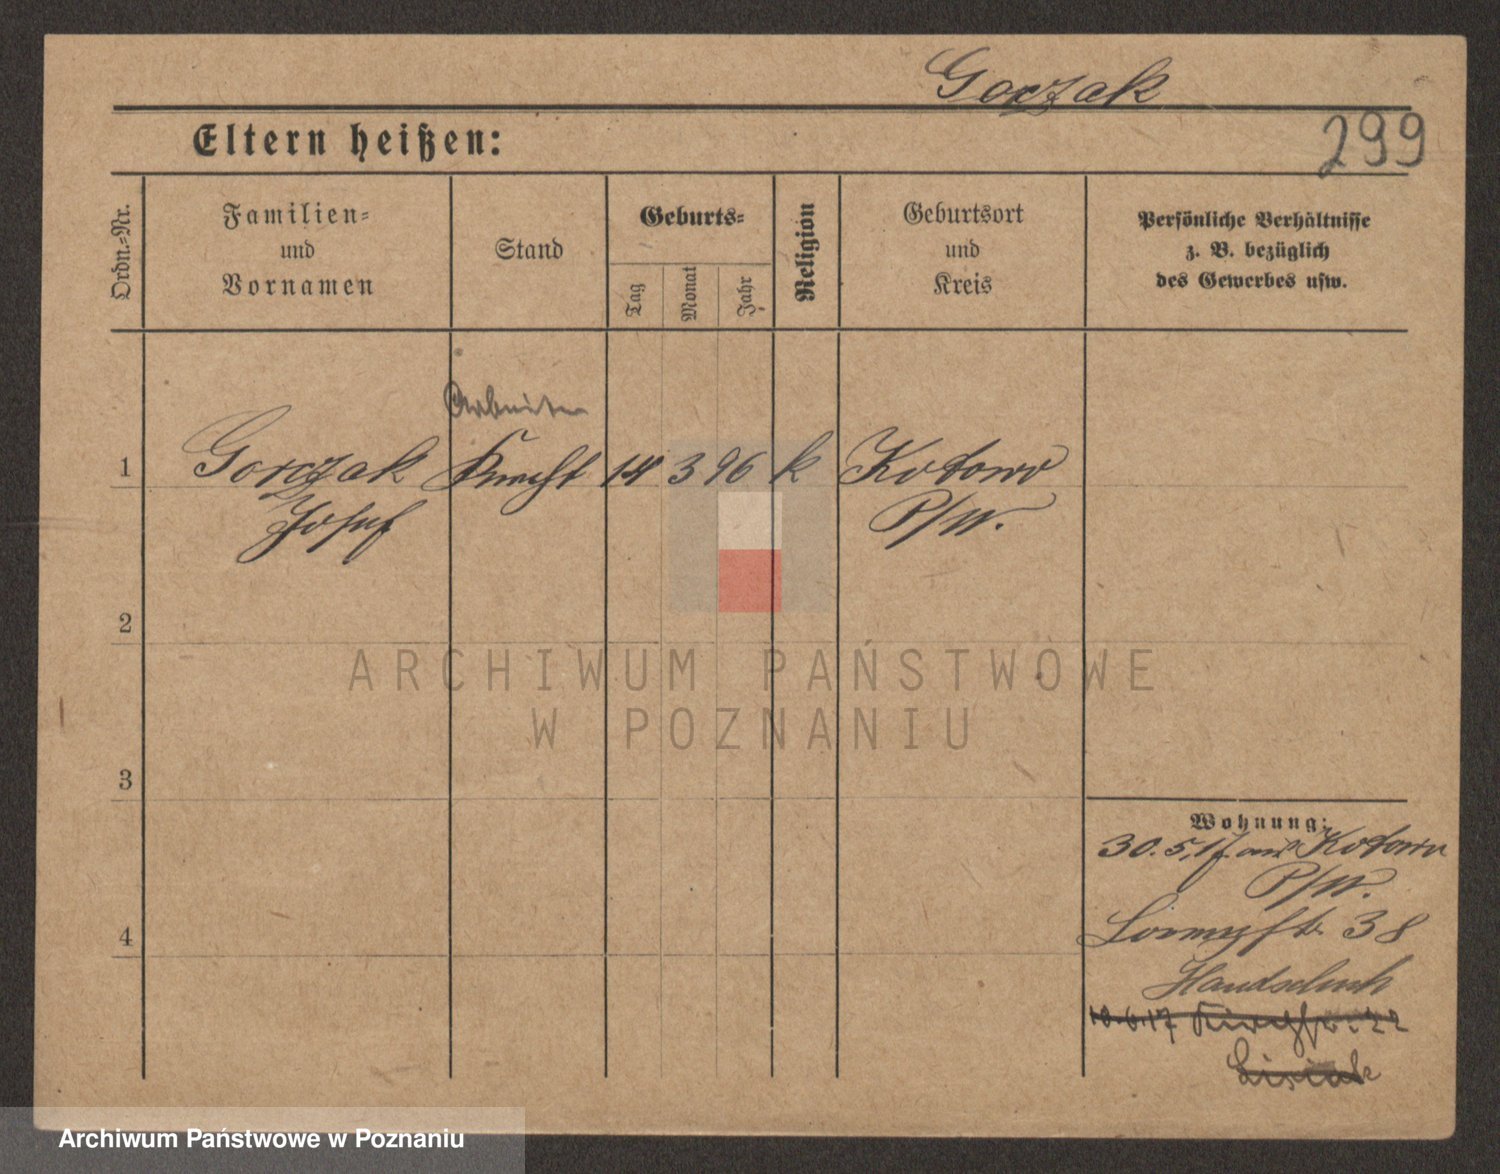 Gorzak
299
Eltern heißen:
Ordn.-Nr.
Familien-
und
Vornamen
Stand
Geburts-
Tag
Monat
Jahr
Religion
Geburtsort
und
Kreis
Persönliche Verhältnisse
z. B. bezüglich
des Gewerbes usw.
Arbeiter
1 Gorzak Knecht 14 3 96 k Kotowo
Josef P/W.
2
3
4
Wohnung:
30.5.17 aus Kotowo
P/W.
38
Handschuh
18.6.17 22
Lisiak
ARCHIWUM PAŃSTWOWE
W POZNANIU
Archiwum Państwowe w Poznaniu